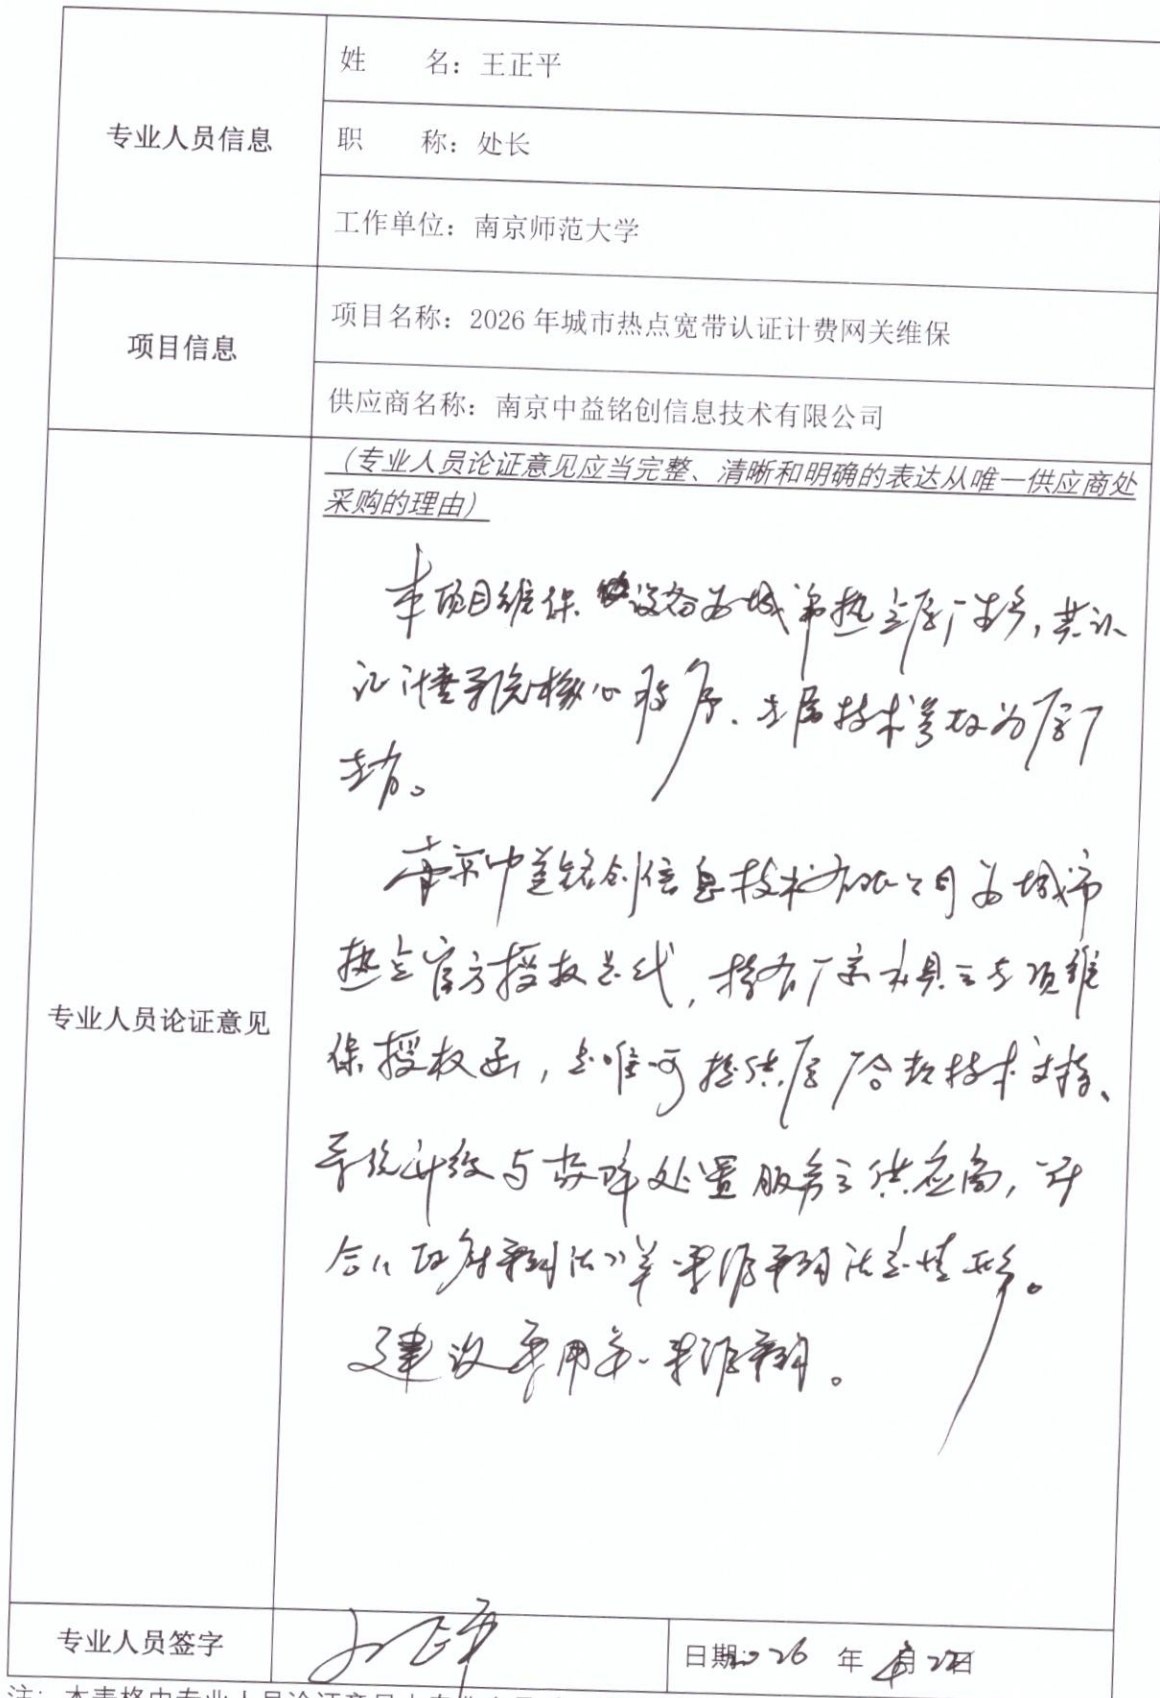 专业人员信息
姓 名：王正平
职 称：处长
工作单位：南京师范大学
项目信息
项目名称：2026 年城市热点宽带认证计费网关维保
供应商名称：南京中益铭创信息技术有限公司
专业人员论证意见
（专业人员论证意见应当完整、清晰和明确的表达从唯一供应商处
采购的理由）
本项目维保 设备为城市热点原厂 ，其认
证计费系统核心程序、专属技术参数为原厂
专有。
南京中益铭创信息技术有限公司为城市
热点官方授权总代，持有厂家出具之专项维
保授权函，是唯一可提供原厂 技术支持、
系统升级与故障处置服务之供应商，符
合《政府采购法》单一来源采购法定情形。
建议采用单一来源采购。
专业人员签字
王正平
日期：2026 年 月 22日
注：本表格中专业人员论证意见由专业人员